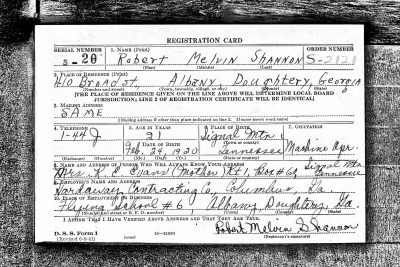 REGISTRATION CARD
SERIAL NUMBER 1. NAME (Print) ORDER NUMBER
S-20 Robert Melvin Shannon S-2121
(First) (Middle) (Last)
2. PLACE OF RESIDENCE (Print)
410 Broad St, Albany, Doughtery, Georgia
(Number and street) (Town, township, village, or city) (County) (State)
[THE PLACE OF RESIDENCE GIVEN ON THE LINE ABOVE WILL DETERMINE LOCAL BOARD
JURISDICTION; LINE 2 OF REGISTRATION CERTIFICATE WILL BE IDENTICAL]
3. MAILING ADDRESS
SAME
[Mailing address if other than place indicated on line 2. If same insert word same]
4. TELEPHONE 5. AGE IN YEARS 6. PLACE OF BIRTH 7. OCCUPATION
1-44 J 21 Signal Mtn
DATE OF BIRTH (Town or county)
Feb. 24, 1920 Tennessee Machine Opr.
(Mo.) (Day) (Yr.) (State or country)
8. NAME AND ADDRESS OF PERSON WHO WILL ALWAYS KNOW YOUR ADDRESS Signal Mtn
Mrs. R. E. Evans (Mother) Rt 1, Box 64 Tennessee
9. EMPLOYER'S NAME AND ADDRESS
Hardaway Contracting Co, Columbus, Ga
10. PLACE OF EMPLOYMENT OR BUSINESS
Flying School #6 Albany, Doughtery, Ga
(Number and street or R. F. D. number) (Town) (County) (State)
I AFFIRM THAT I HAVE VERIFIED ABOVE ANSWERS AND THAT THEY ARE TRUE.
D. S. S. Form 1 Robert Melvin Shannon
(Revised 6-9-41) (Registrant's signature)